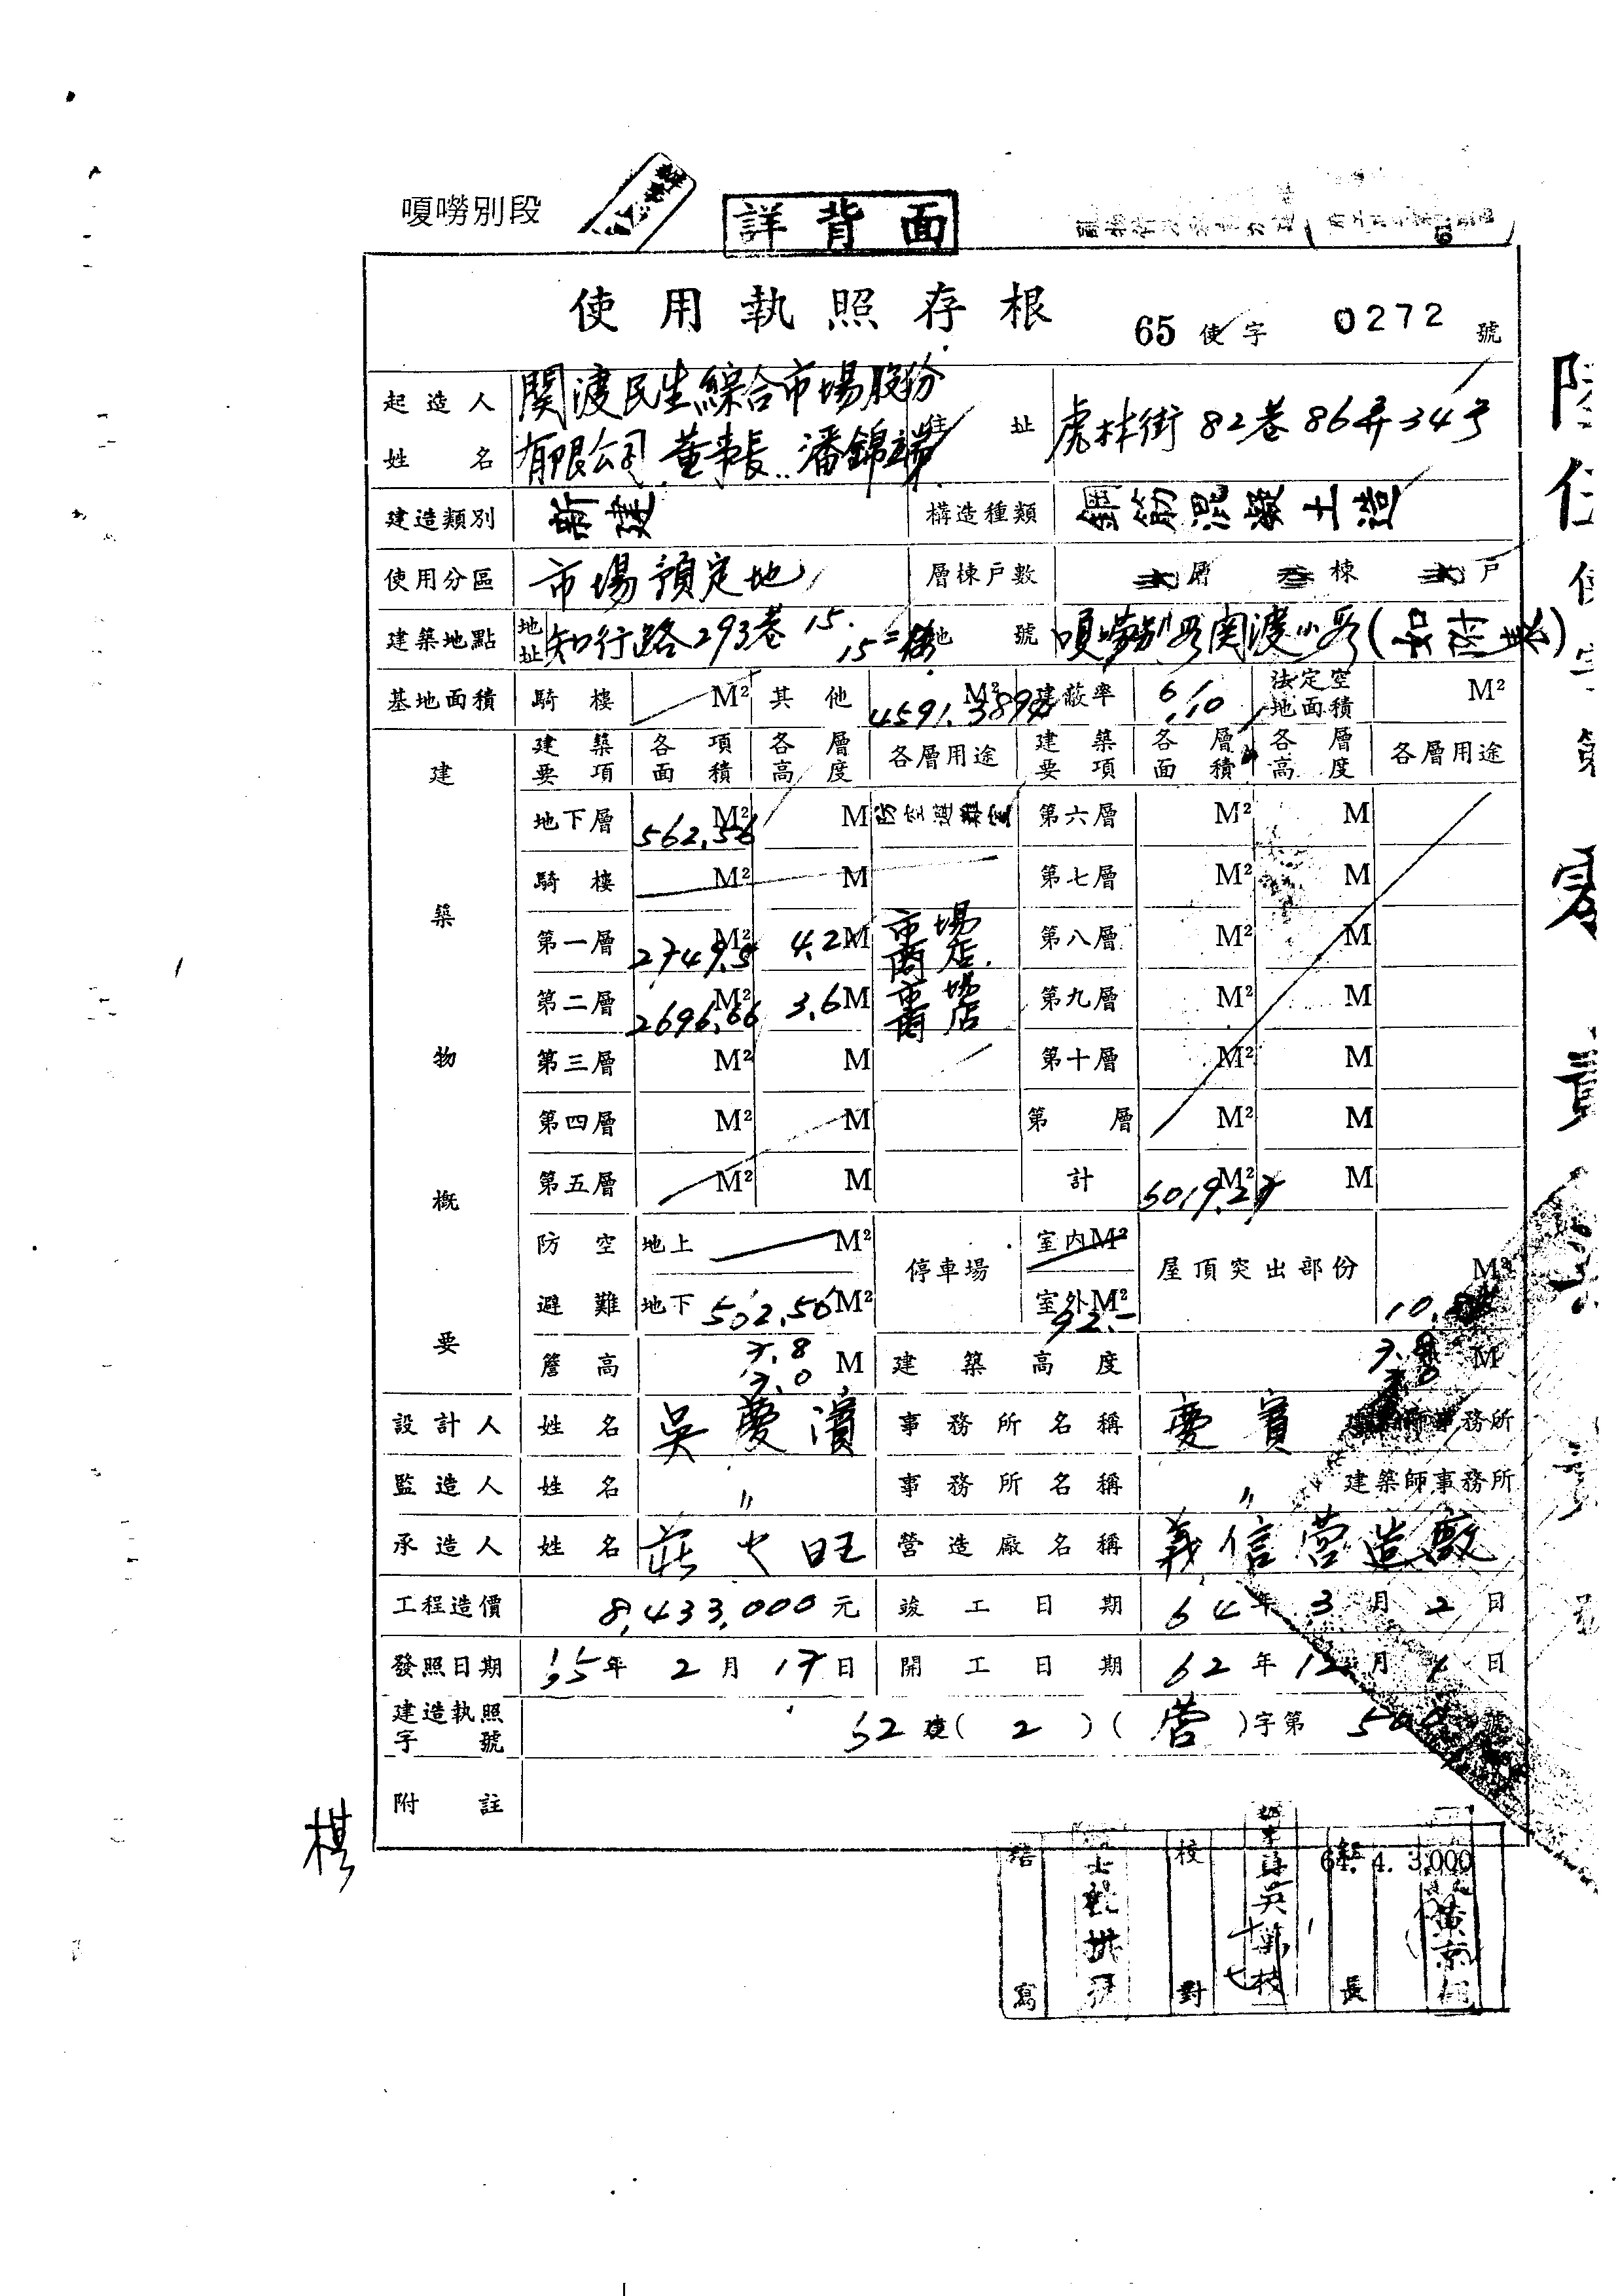 嗄嘮別段
詳背面
使用執照存根 65 使字 0272 號
起造人姓名 関渡民生綜合市場股份有限公司 董事長 潘錦端 住址 虎林街82巷86弄34号
建造類別 新建 構造種類 鋼筋混凝土造
使用分區 市場預定地 層棟戶數 層 棟 戶
建築地點 地址 知行路293巷15. 15二樓 地號 嗄嘮別段関渡小段(
基地面積 騎樓 M² 其他 4591.389 M² 建蔽率 6/10 法定空地面積 M²
建築物概要
建築要項 各項面積 各層高度 各層用途 建築要項 各層面積 各層高度 各層用途
地下層 562.56 M² M 防空避難室 第六層 M² M
騎樓 M² M 第七層 M² M
第一層 2749.5 M² 4.2M 市場商店 第八層 M² M
第二層 2696.66 M² 3.6M 市場商店 第九層 M² M
第三層 M² M 第十層 M² M
第四層 M² M 第 層 M² M
第五層 M² M 計 6019.27 M² M
防空避難 地上 M² 停車場 室內M² 屋頂突出部份 M²
地下 502.50 M² 室外M² 92.-
簷高 7.8 7.0 M 建築高度 M
設計人 姓名 吳慶濱 事務所名稱 慶賓 建築師事務所
監造人 姓名 〃 事務所名稱 〃 建築師事務所
承造人 姓名 莊火旺 營造廠名稱 義信营造廠
工程造價 8,433,000元 竣工日期 64年3月2日
發照日期 65年2月17日 開工日期 62年12月1日
建造執照字號 62建(2)(营)字第 號
附註
棋
64. 4. 3,000
繕寫 校對 組長